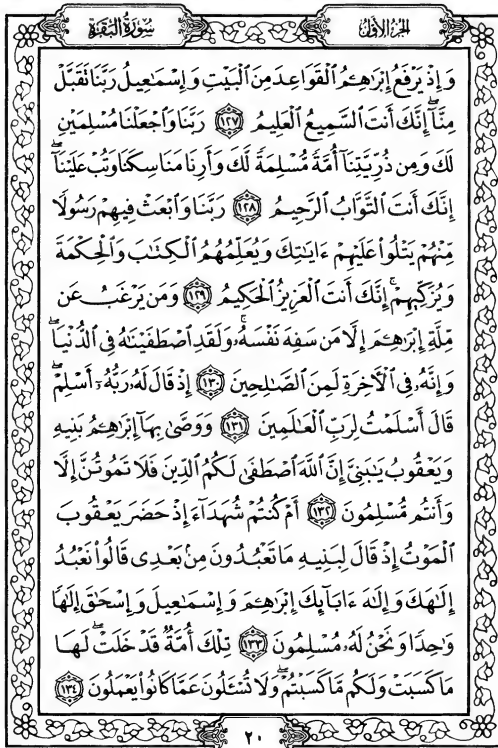 سُورَةُ البَقَرَةِ
الجُزءُ الأَوَّلُ
وَإِذْ يَرْفَعُ إِبْرَٰهِـۧمُ ٱلْقَوَاعِدَ مِنَ ٱلْبَيْتِ وَإِسْمَٰعِيلُ رَبَّنَا تَقَبَّلْ
مِنَّآ ۖ إِنَّكَ أَنتَ ٱلسَّمِيعُ ٱلْعَلِيمُ ١٢٧ رَبَّنَا وَٱجْعَلْنَا مُسْلِمَيْنِ
لَكَ وَمِن ذُرِّيَّتِنَآ أُمَّةً مُّسْلِمَةً لَّكَ وَأَرِنَا مَنَاسِكَنَا وَتُبْ عَلَيْنَآ ۖ
إِنَّكَ أَنتَ ٱلتَّوَّابُ ٱلرَّحِيمُ ١٢٨ رَبَّنَا وَٱبْعَثْ فِيهِمْ رَسُولًا
مِّنْهُمْ يَتْلُوا۟ عَلَيْهِمْ ءَايَٰتِكَ وَيُعَلِّمُهُمُ ٱلْكِتَٰبَ وَٱلْحِكْمَةَ
وَيُزَكِّيهِمْ ۚ إِنَّكَ أَنتَ ٱلْعَزِيزُ ٱلْحَكِيمُ ١٢٩ وَمَن يَرْغَبُ عَن
مِّلَّةِ إِبْرَٰهِـۧمَ إِلَّا مَن سَفِهَ نَفْسَهُۥ ۚ وَلَقَدِ ٱصْطَفَيْنَٰهُ فِى ٱلدُّنْيَا ۖ
وَإِنَّهُۥ فِى ٱلْءَاخِرَةِ لَمِنَ ٱلصَّٰلِحِينَ ١٣٠ إِذْ قَالَ لَهُۥ رَبُّهُۥٓ أَسْلِمْ ۖ
قَالَ أَسْلَمْتُ لِرَبِّ ٱلْعَٰلَمِينَ ١٣١ وَوَصَّىٰ بِهَآ إِبْرَٰهِـۧمُ بَنِيهِ
وَيَعْقُوبُ يَٰبَنِىَّ إِنَّ ٱللَّهَ ٱصْطَفَىٰ لَكُمُ ٱلدِّينَ فَلَا تَمُوتُنَّ إِلَّا
وَأَنتُم مُّسْلِمُونَ ١٣٢ أَمْ كُنتُمْ شُهَدَآءَ إِذْ حَضَرَ يَعْقُوبَ
ٱلْمَوْتُ إِذْ قَالَ لِبَنِيهِ مَا تَعْبُدُونَ مِنۢ بَعْدِى قَالُوا۟ نَعْبُدُ
إِلَٰهَكَ وَإِلَٰهَ ءَابَآئِكَ إِبْرَٰهِـۧمَ وَإِسْمَٰعِيلَ وَإِسْحَٰقَ إِلَٰهًا
وَٰحِدًا وَنَحْنُ لَهُۥ مُسْلِمُونَ ١٣٣ تِلْكَ أُمَّةٌ قَدْ خَلَتْ ۖ لَهَا
مَا كَسَبَتْ وَلَكُم مَّا كَسَبْتُمْ ۖ وَلَا تُسْـَٔلُونَ عَمَّا كَانُوا۟ يَعْمَلُونَ ١٣٤
٢٠